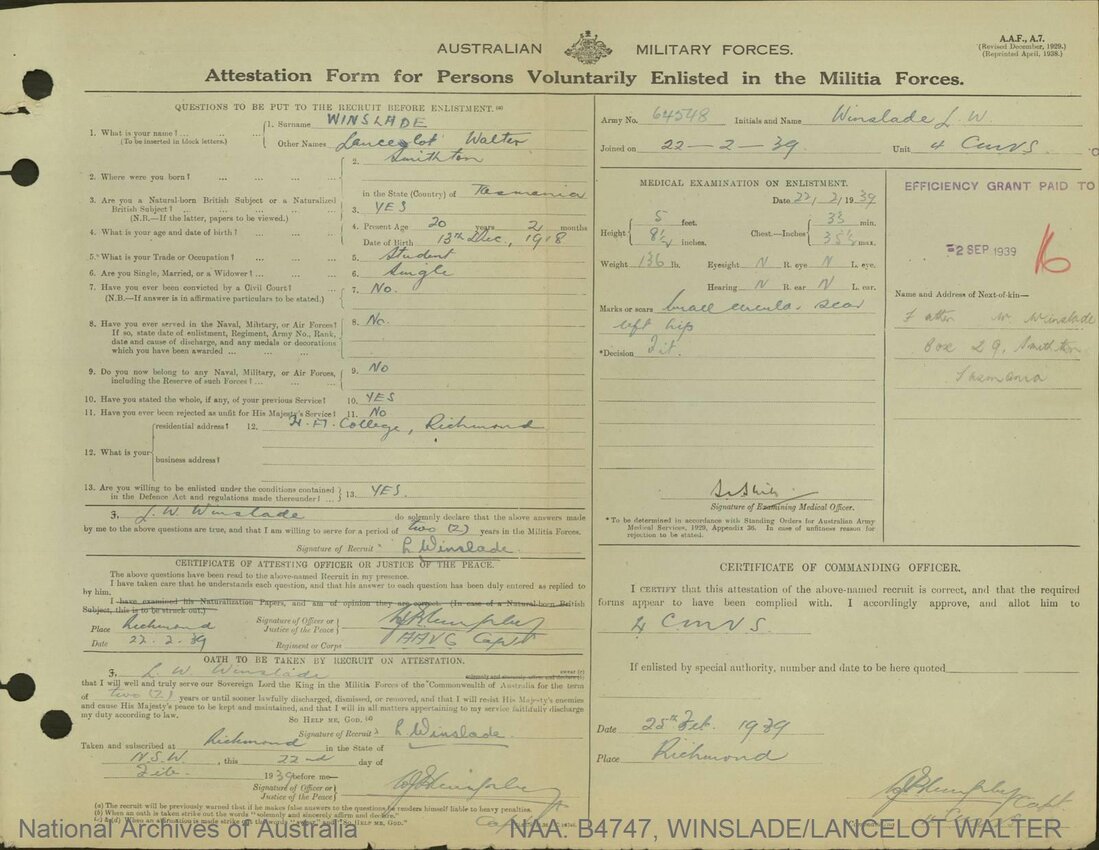 AUSTRALIAN MILITARY FORCES.
A.A.F., A.7.
(Revised December, 1929.)
(Reprinted April, 1938.)
Attestation Form for Persons Voluntarily Enlisted in the Militia Forces.
QUESTIONS TO BE PUT TO THE RECRUIT BEFORE ENLISTMENT.(a)
1. What is your name? ... ... ...
(To be inserted in block letters.)
1. Surname WINSLADE
Other Names Lancelot Walter
2. Where were you born? ... ... ...
2. Smithton
in the State (Country) of Tasmania
3. Are you a Natural-born British Subject or a Naturalized
British Subject? ... ... ...
(N.B.—If the latter, papers to be viewed.)
3. YES
4. What is your age and date of birth? ... ...
4. Present Age 20 years 2 months
Date of Birth 13th Dec, 1918
5. What is your Trade or Occupation? ... ...
5. Student
6. Are you Single, Married, or a Widower? ... ...
6. Single
7. Have you ever been convicted by a Civil Court? ...
(N.B.—If answer is in affirmative particulars to be stated.)
7. No.
8. Have you ever served in the Naval, Military, or Air Forces?
If so, state date of enlistment, Regiment, Army No., Rank,
date and cause of discharge, and any medals or decorations
which you have been awarded ... ...
8. No.
9. Do you now belong to any Naval, Military, or Air Forces,
including the Reserve of such Forces? ... ...
9. No
10. Have you stated the whole, if any, of your previous Service?
10. YES
11. Have you ever been rejected as unfit for His Majesty's Service?
11. No
12. What is your
residential address? 12. H.A. College, Richmond
business address?
13. Are you willing to be enlisted under the conditions contained
in the Defence Act and regulations made thereunder? ...
13. YES.
I, L. W. Winslade do solemnly declare that the above answers made
by me to the above questions are true, and that I am willing to serve for a period of two (2) years in the Militia Forces.
Signature of Recruit L Winslade
CERTIFICATE OF ATTESTING OFFICER OR JUSTICE OF THE PEACE.
The above questions have been read to the above-named Recruit in my presence.
I have taken care that he understands each question, and that his answer to each question has been duly entered as replied to
by him.
I have examined his Naturalization Papers, and am of opinion they are correct. (In case of a Natural-born British
Subject, this is to be struck out.)
Place Richmond
Date 22. 2. 39
Signature of Officer or
Justice of the Peace
Regiment or Corps AAVC Capt
OATH TO BE TAKEN BY RECRUIT ON ATTESTATION.
I, L. W. Winslade swear (c)
solemnly and sincerely affirm and declare
that I will well and truly serve our Sovereign Lord the King in the Militia Forces of the Commonwealth of Australia for the term
of two (2) years or until sooner lawfully discharged, dismissed, or removed, and that I will resist His Majesty's enemies
and cause His Majesty's peace to be kept and maintained, and that I will in all matters appertaining to my service faithfully discharge
my duty according to law.
So Help Me, God. (d)
Signature of Recruit L Winslade.
Taken and subscribed at Richmond in the State of
N.S.W., this 22nd day of
Feb. 1939 before me—
Signature of Officer or
Justice of the Peace
Capt
(a) The recruit will be previously warned that if he makes false answers to the questions he renders himself liable to heavy penalties.
(b) When an oath is taken strike out the words "solemnly and sincerely affirm and declare."
Army No. 64548 Initials and Name Winslade L. W.
Joined on 22—2—39. Unit 4 CMVS.
MEDICAL EXAMINATION ON ENLISTMENT.
Date 22/2/1939
Height 5 feet.
8½ inches.
Chest—Inches 33 min.
35½ max.
Weight 136 lb. Eyesight N R. eye N L. eye.
Hearing N R. ear N L. ear.
Marks or scars Small circular scar
left hip
*Decision Fit.
Signature of Examining Medical Officer.
* To be determined in accordance with Standing Orders for Australian Army
Medical Services, 1929, Appendix 36. In case of unfitness reason for
rejection to be stated.
EFFICIENCY GRANT PAID TO
2 SEP 1939
16
Name and Address of Next-of-kin—
Father W Winslade
Box 29, Smithton
Tasmania
CERTIFICATE OF COMMANDING OFFICER.
I CERTIFY that this attestation of the above-named recruit is correct, and that the required
forms appear to have been complied with. I accordingly approve, and allot him to
4 CMVS.
If enlisted by special authority, number and date to be here quoted
Date 25th Feb. 1939
Place Richmond
Capt
National Archives of Australia
NAA: B4747, WINSLADE/LANCELOT WALTER